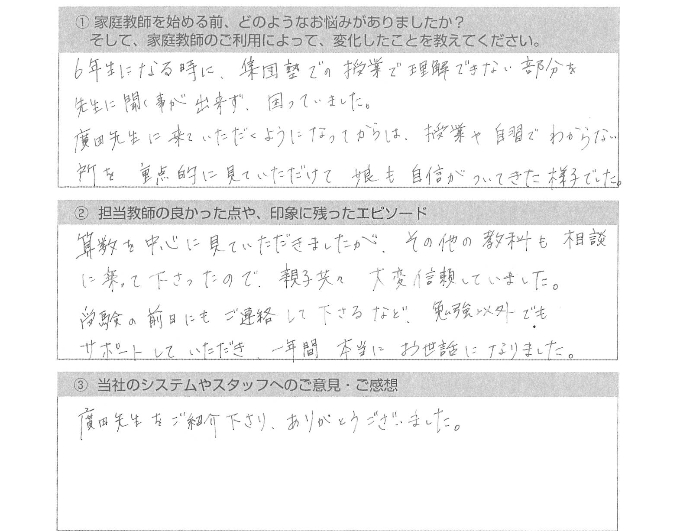 ① 家庭教師を始める前、どのようなお悩みがありましたか？
そして、家庭教師のご利用によって、変化したことを教えてください。
6年生になる時に、集団塾での授業で理解できない部分を
先生に聞く事が出来ず、困っていました。
廣田先生に来ていただくようになってからは、授業や自習でわからない
所を重点的に見ていただけて娘も自信がついてきた様子でした。
② 担当教師の良かった点や、印象に残ったエピソード
算数を中心に見ていただきましたが、その他の教科も相談
に乗って下さったので、親子共々大変信頼していました。
受験の前日にもご連絡して下さるなど、勉強以外でも
サポートしていただき、一年間本当にお世話になりました。
③ 当社のシステムやスタッフへのご意見・ご感想
廣田先生をご紹介下さり、ありがとうございました。